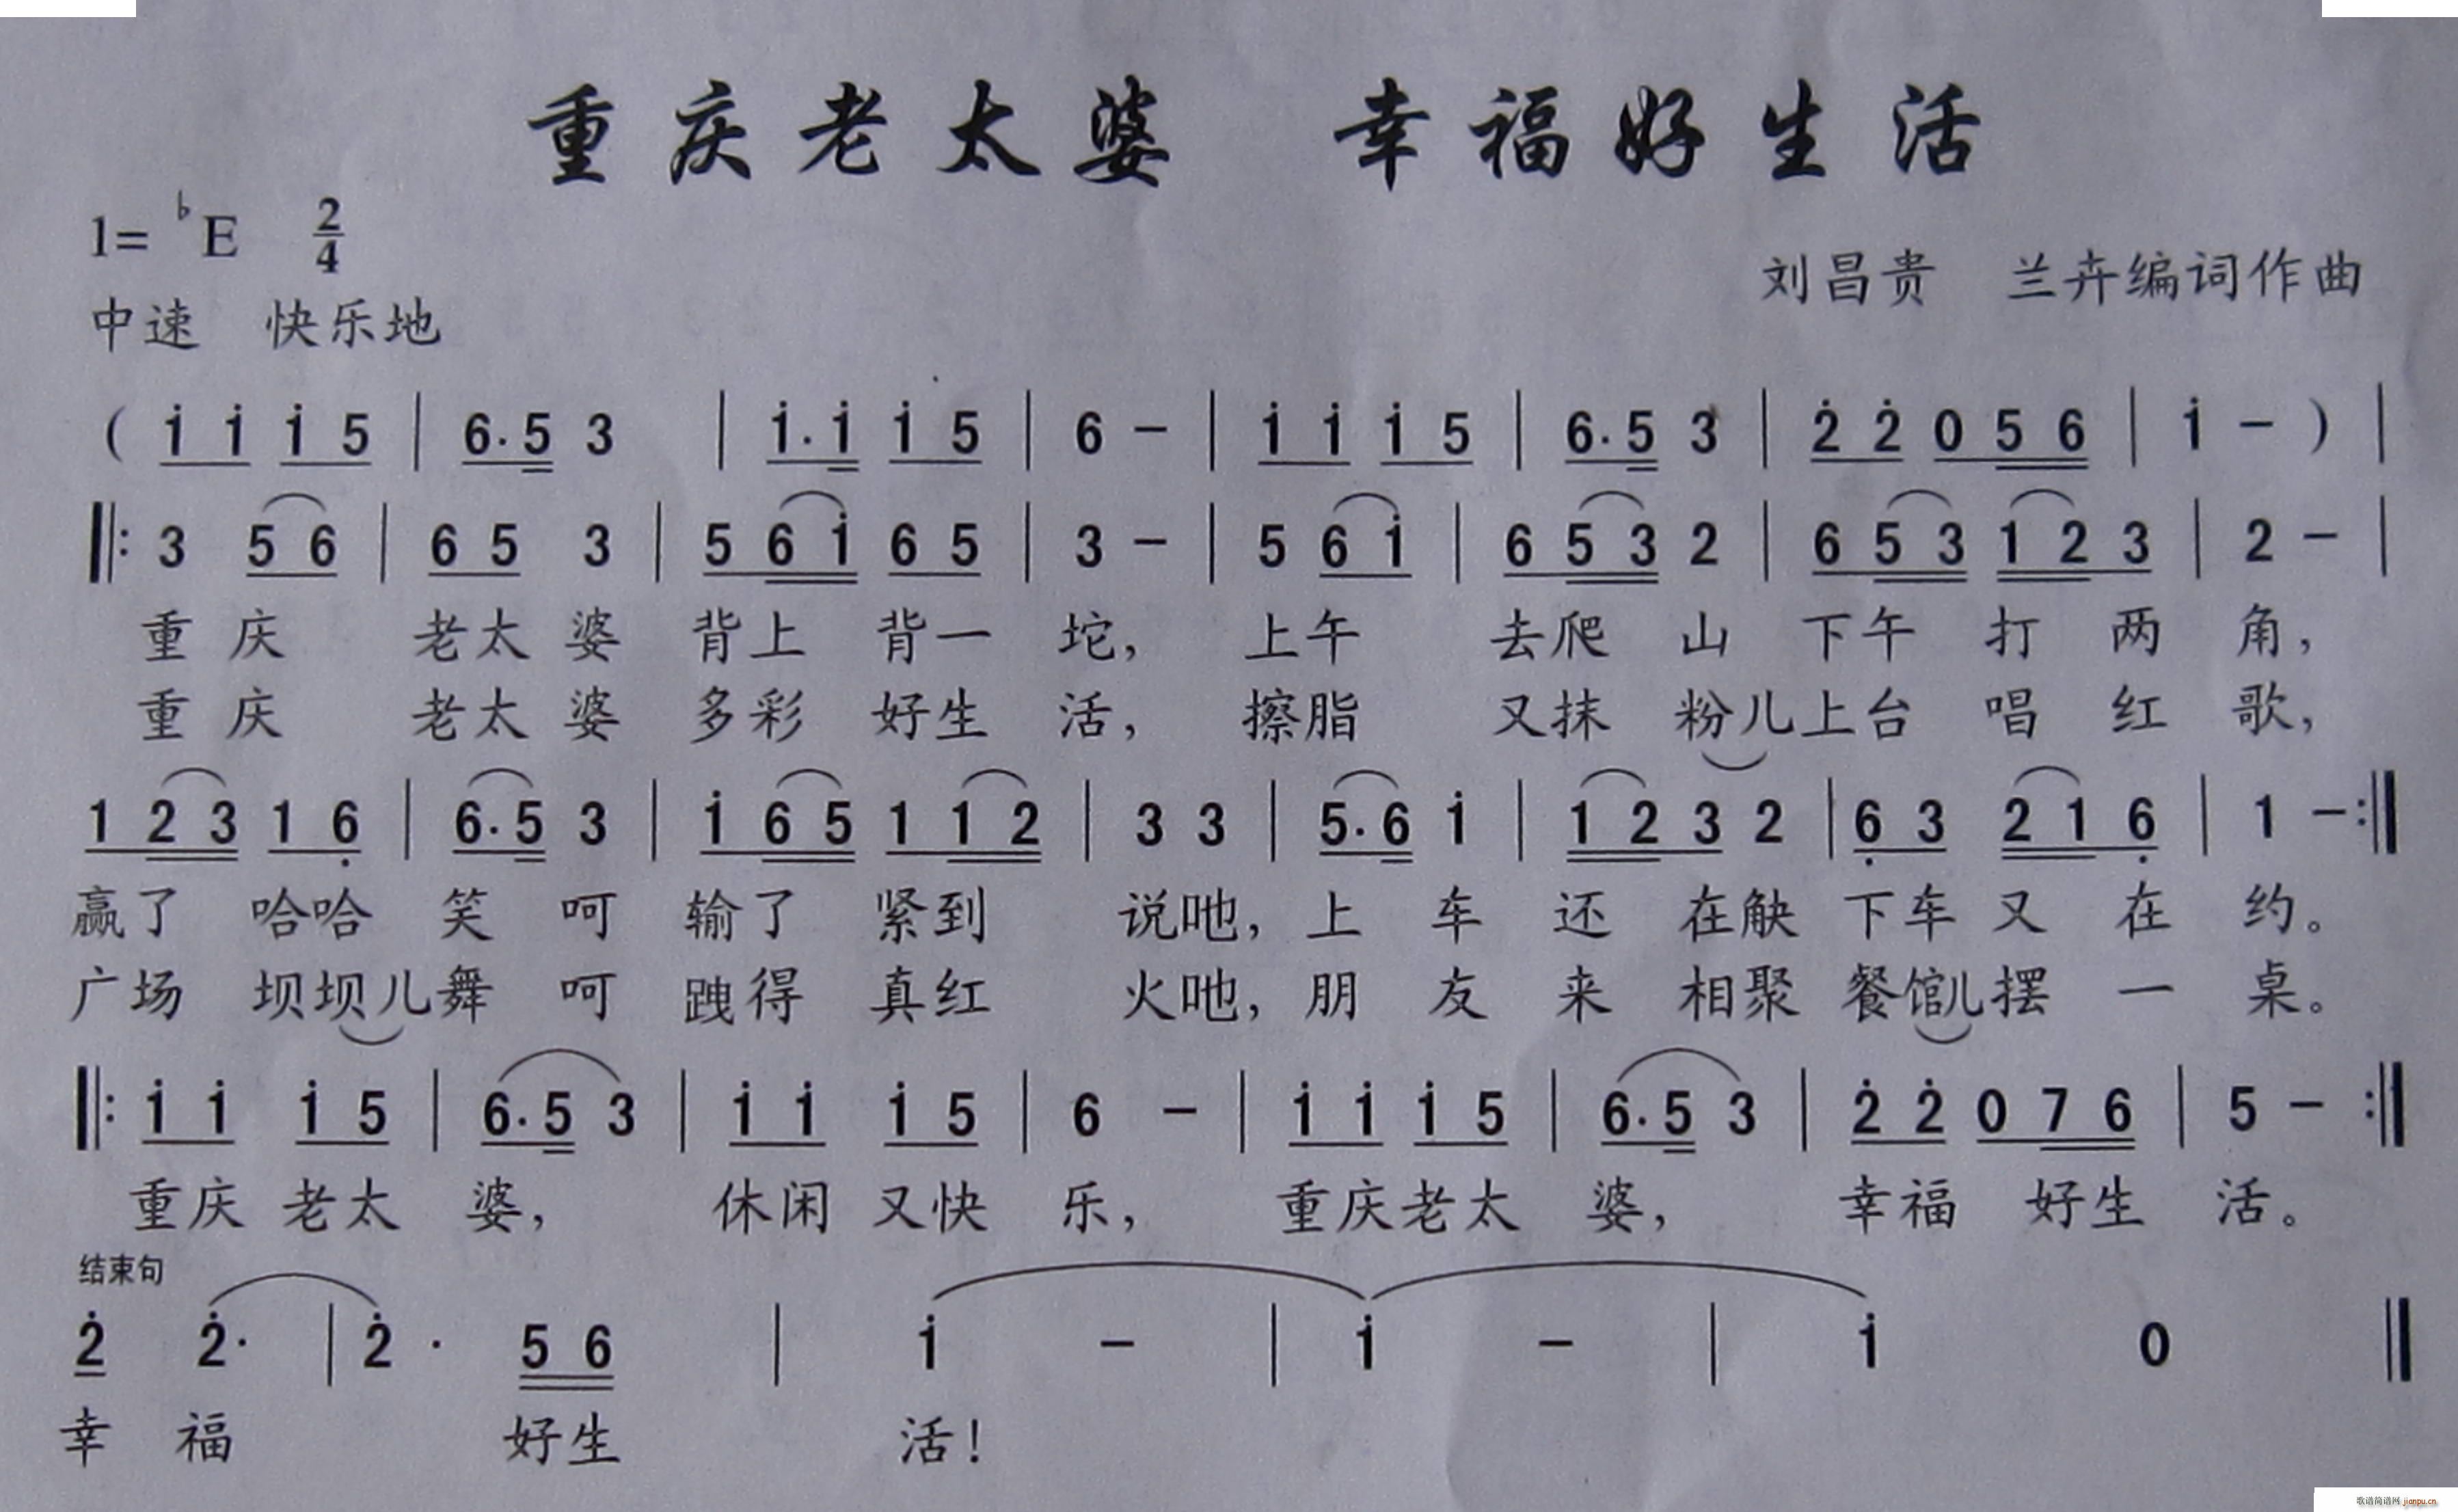 重庆老太婆 幸福好生活
1= ♭E 2/4
刘昌贵 兰卉编词作曲
中速 快乐地
( i i i 5 | 6. 5 3 | i. i i 5 | 6 – | i i i 5 | 6. 5 3 | 2̇ 2̇ 0 5 6 | i – ) |
‖: 3 5 6 | 6 5 3 | 5 6 i 6 5 | 3 – | 5 6 i | 6 5 3 2 | 6 5 3 1 2 3 | 2 – |
重庆 老太婆 背上 背一 坨, 上午 去爬 山 下午 打 两 角,
重庆 老太婆 多彩 好生 活, 擦脂 又抹 粉儿上台 唱 红 歌,
1 2 3 1 6̣ | 6. 5 3 | i 6 5 1 1 2 | 3 3 | 5. 6 i | 1 2 3 2 | 6̣ 3 2 1 6̣ | 1 – :‖
赢了 哈哈 笑 呵 输了 紧到 说吔, 上 车 还 在觖 下车 又 在 约。
广场 坝坝儿舞 呵 跩得 真红 火吔, 朋 友 来 相聚 餐馆儿摆 一 桌。
‖: i i i 5 | 6. 5 3 | i i i 5 | 6 – | i i i 5 | 6. 5 3 | 2̇ 2̇ 0 7 6 | 5 – :‖
重庆 老太 婆, 休闲 又快 乐, 重庆老太 婆, 幸福 好生 活。
结束句
2̇ 2̇. | 2̇. 5 6 | i – | i – | i 0 ‖
幸 福 好生 活!
歌谱简谱网 jianpu.cn